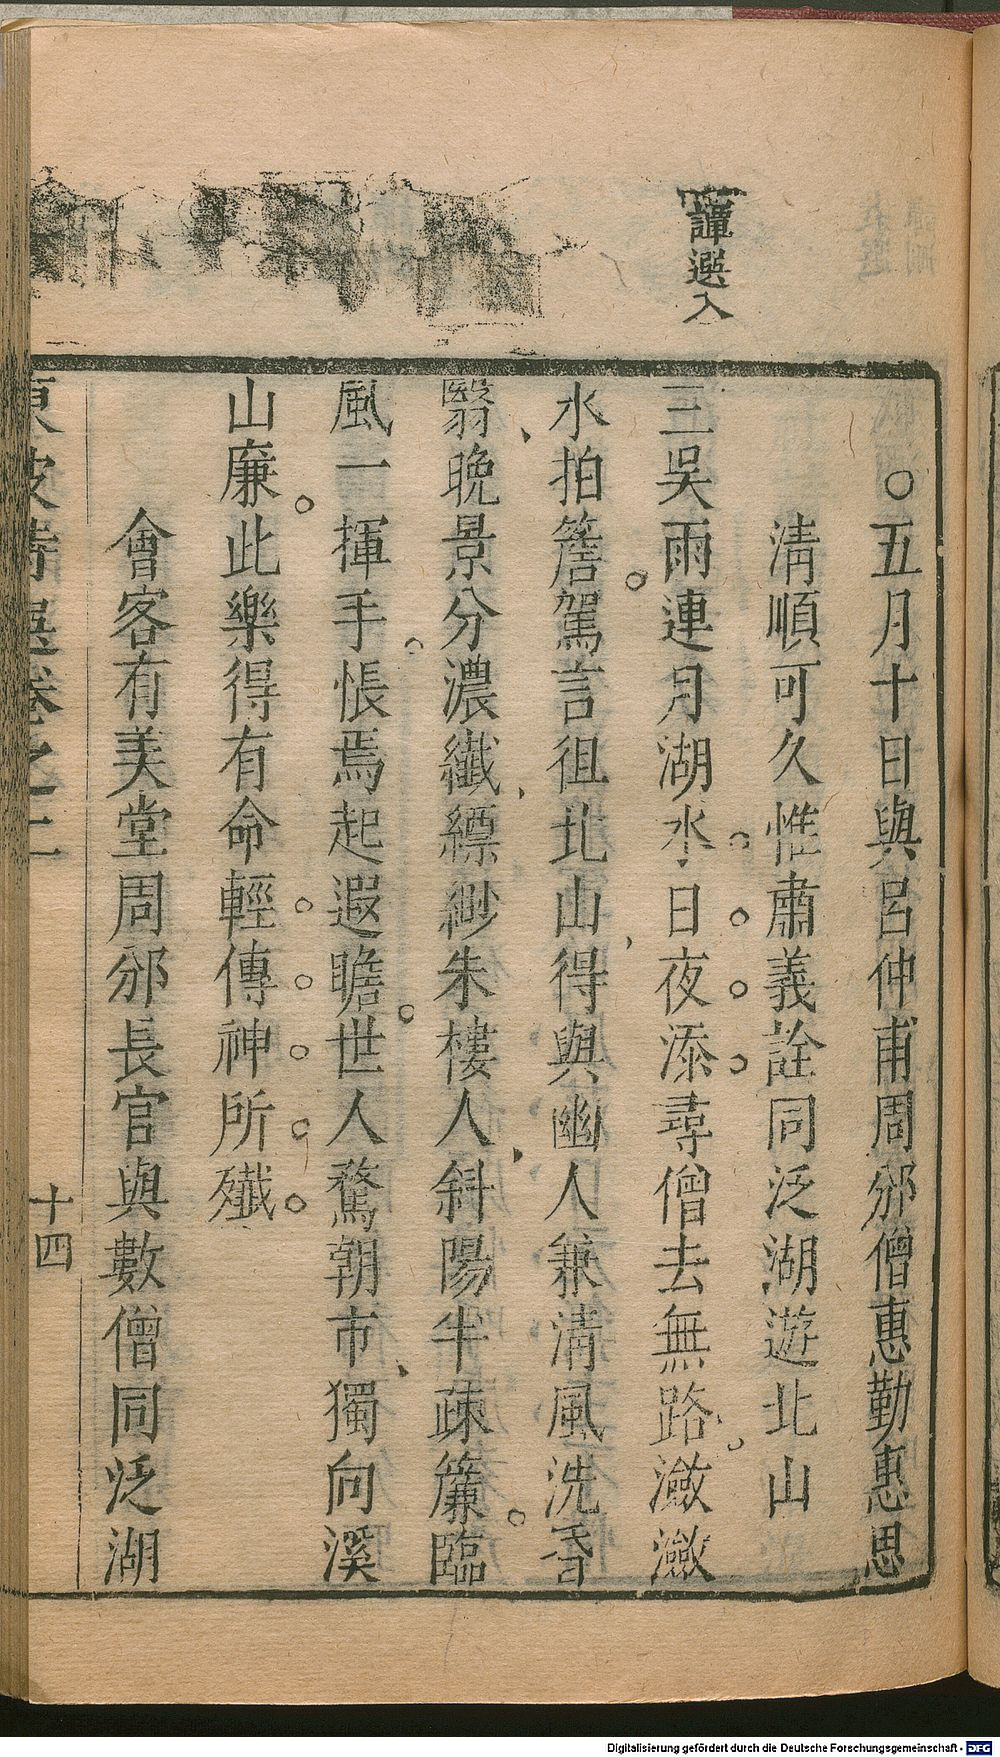 譚選入
○五月十日與呂仲甫周邠僧惠勤惠思
清順可久惟肅義詮同泛湖遊北山
三吳雨連月湖水日夜添尋僧去無路瀲瀲
水拍簷駕言徂北山得與幽人兼清風洗昏
翳晩景分濃纖縹緲朱樓人斜陽半疎簾臨
風一揮手悵焉起遐瞻世人騖朝市獨向溪
山廉此樂得有命輕傳神所殲
會客有美堂周邠長官與數僧同泛湖
東坡詩選卷之二
十四
Digitalisierung gefördert durch die Deutsche Forschungsgemeinschaft - DFG